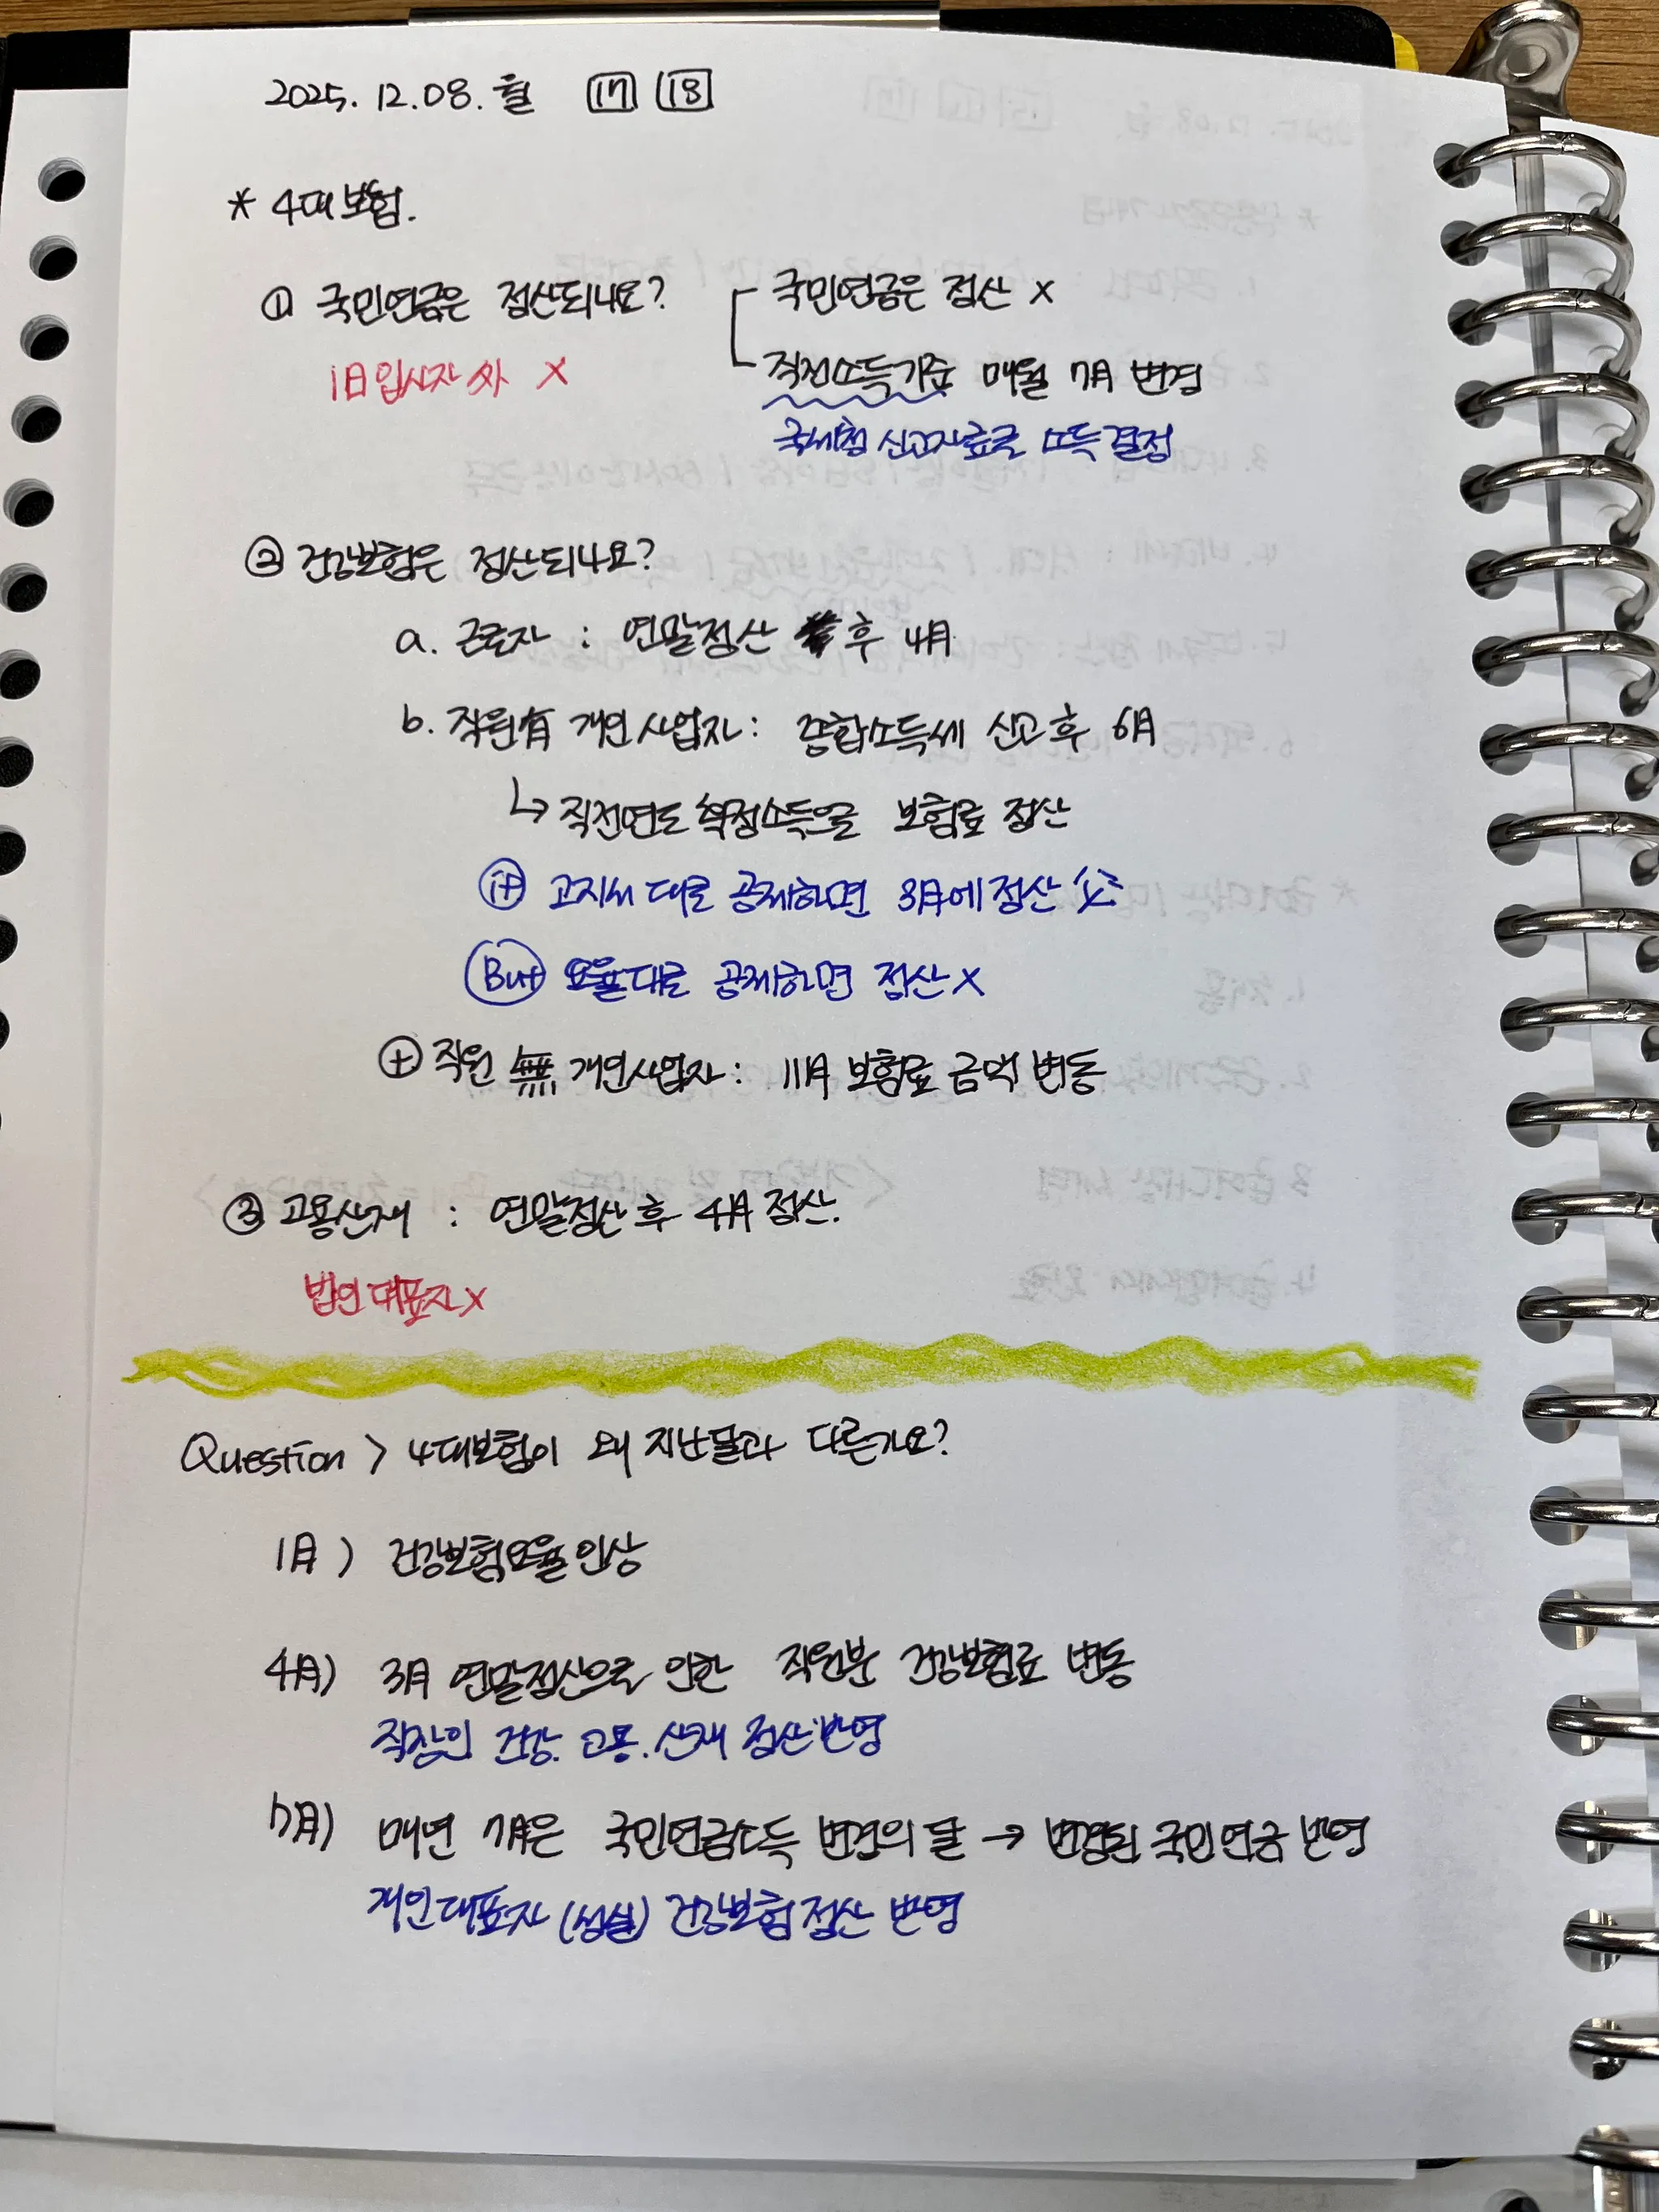 2025. 12. 08. 월 17 18
* 4대보험.
① 국민연금은 정산되나요?
1日 입사자 外 X
국민연금은 정산 X
직전소득기준 매월 7月 변경
국세청 신고자료로 소득결정
② 건강보험은 정산되나요?
a. 근로자 : 연말정산 후 4月
b. 직원有 개인사업자 : 종합소득세 신고 후 6月
↳ 직전연도 확정소득으로 보험료 정산
if 고지서 대로 공제하면 3月에 정산
But 요율대로 공제하면 정산 X
⊕ 직원 無 개인사업자 : 11月 보험료 금액 변동
③ 고용산재 : 연말정산 후 4月 정산.
법인대표자 X
Question > 4대보험이 왜 지난달과 다른가요?
1月) 건강보험요율 인상
4月) 3月 연말정산으로 인한 직원분 건강보험료 변동
직장인 건강. 고용. 산재 정산 반영
7月) 매년 7月은 국민연금소득 변경의 달 → 변경된 국민연금 반영
개인대표자 (성실) 건강보험정산 반영